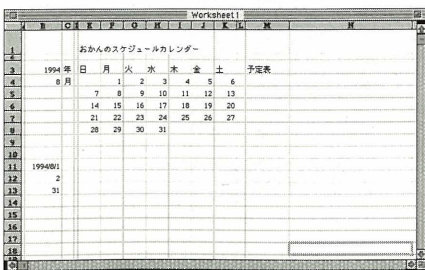 Worksheet1
B C D E F G H I J K L M N
1 おかんのスケジュールカレンダー
3 1994 年 日 月 火 水 木 金 土 予定表
4 8 月 1 2 3 4 5 6
5 7 8 9 10 11 12 13
6 14 15 16 17 18 19 20
7 21 22 23 24 25 26 27
8 28 29 30 31
9
10
11 1994/8/1
12 2
13 31
14
15
16
17
18